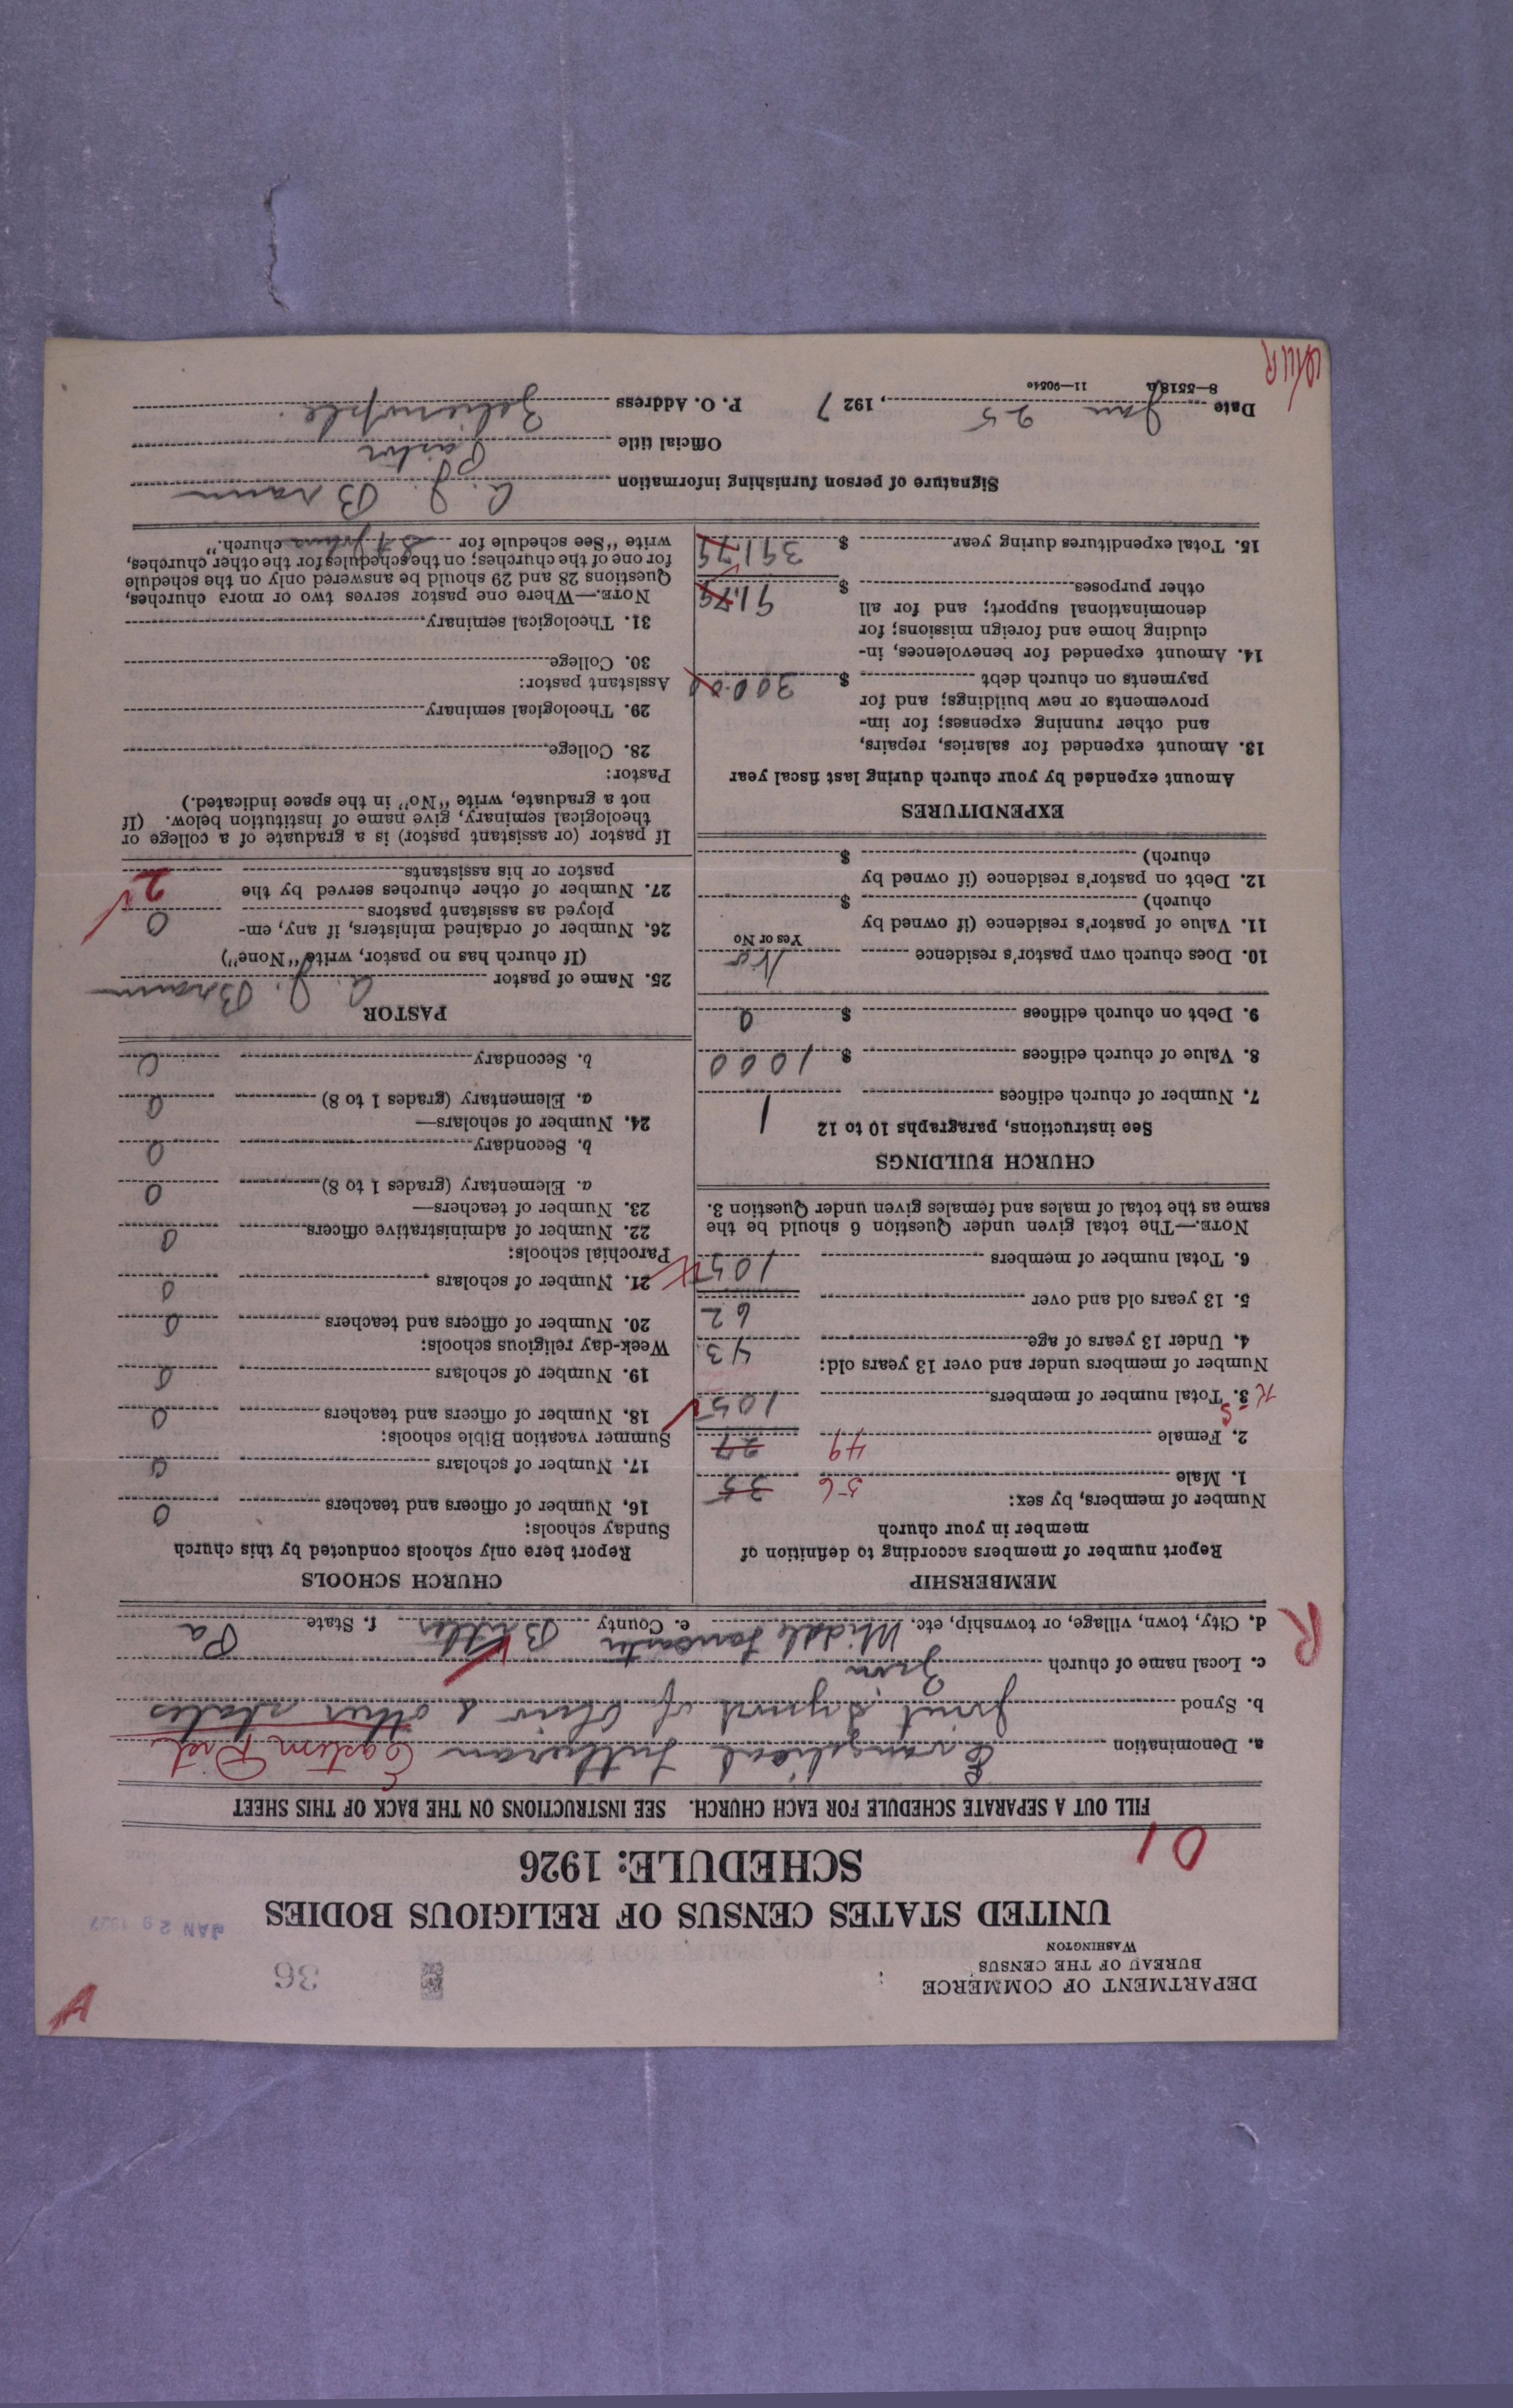 DEPARTMENT OF COMMERCE
BUREAU OF THE CENSUS
WASHINGTON
36
A
UNITED STATES CENSUS OF RELIGIOUS BODIES
JAN 29 1927
SCHEDULE: 1926
01
FILL OUT A SEPARATE SCHEDULE FOR EACH CHURCH. SEE INSTRUCTIONS ON THE BACK OF THIS SHEET
a. Denomination Evangelical Lutheran Eastern Dist
b. Synod Joint Synod of Ohio & other states
c. Local name of church Zion
R
d. City, town, village, or township, etc. Middle Lancaster e. County Butler f. State Pa
MEMBERSHIP
Report number of members according to definition of
member in your church
Number of members, by sex:
1. Male 56 35
2. Female 49 27
3. Total number of members 105
Number of members under and over 13 years old:
4. Under 13 years of age 43
5. 13 years old and over 62
6. Total number of members 105
NOTE.—The total given under Question 6 should be the
same as the total of males and females given under Question 3.
CHURCH BUILDINGS
See instructions, paragraphs 10 to 12
7. Number of church edifices 1
8. Value of church edifices $ 1000
9. Debt on church edifices $ 0
10. Does church own pastor's residence No
Yes or No
11. Value of pastor's residence (if owned by
church) $
12. Debt on pastor's residence (if owned by
church) $
EXPENDITURES
Amount expended by your church during last fiscal year
13. Amount expended for salaries, repairs,
and other running expenses; for im-
provements or new buildings; and for
payments on church debt $ 300.00
14. Amount expended for benevolences, in-
cluding home and foreign missions; for
denominational support; and for all
other purposes $ 91.79
15. Total expenditures during year $ 391.79
CHURCH SCHOOLS
Report here only schools conducted by this church
Sunday schools:
16. Number of officers and teachers 0
17. Number of scholars 0
Summer vacation Bible schools:
18. Number of officers and teachers 0
19. Number of scholars 0
Week-day religious schools:
20. Number of officers and teachers 0
21. Number of scholars 0
Parochial schools:
22. Number of administrative officers 0
23. Number of teachers—
a. Elementary (grades 1 to 8) 0
b. Secondary 0
24. Number of scholars—
a. Elementary (grades 1 to 8) 0
b. Secondary 0
PASTOR
25. Name of pastor A. J. Braun
(If church has no pastor, write "None")
26. Number of ordained ministers, if any, em-
ployed as assistant pastors 0
27. Number of other churches served by the
pastor or his assistants 2
If pastor (or assistant pastor) is a graduate of a college or
theological seminary, give name of institution below. (If
not a graduate, write "No" in the space indicated.)
Pastor:
28. College
29. Theological seminary
Assistant pastor:
30. College
31. Theological seminary
NOTE.—Where one pastor serves two or more churches,
Questions 28 and 29 should be answered only on the schedule
for one of the churches; on the schedules for the other churches,
write "See schedule for St Johns church."
Signature of person furnishing information A. J. Braun
Official title Pastor
Date Jan 25, 1927 P. O. Address Zelienople.
8—5518a 11—9054c